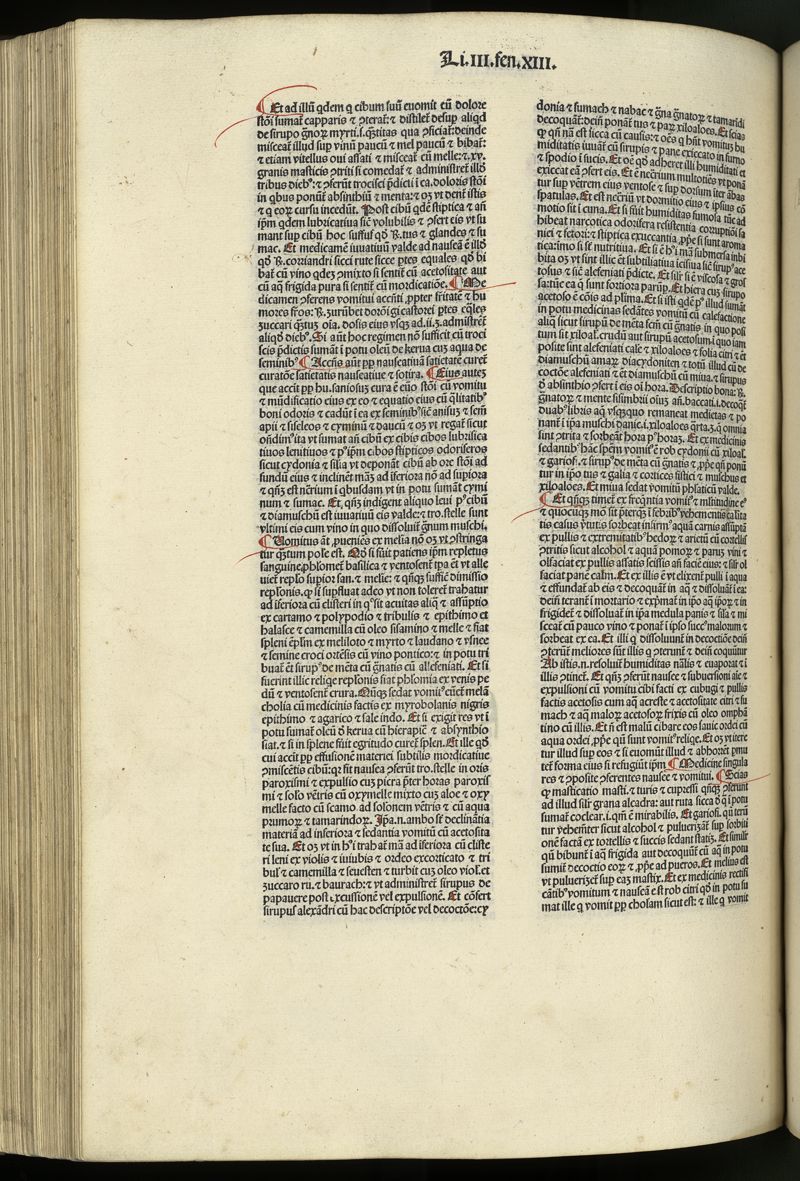 Li.III.fen.XIII.
Et ad illũ qdem q cibum suũ euomit cũ dolore
stõi sumat capparis ⁊ ꝯterat: ⁊ distilet desup aliqd
de sirupo gnoꝝ myrti.s.qstitas qua ꝯficiat: deinde
misceat illud sup vinũ paucũ ⁊ mel paucũ ⁊ bibat:
⁊ etiam vitellus oui assati ⁊ misceat cũ melle: ⁊.xv.
granis masticis ꝯtriti si comedat ⁊ administret illð
tribus dieb⁹: ⁊ ꝯferũt trocisci p̃dicti i ea.doloris stõi
in qbus ponũt absinthiũ ⁊ menta: ⁊ oʒ vt dent istis
⁊ q eoꝝ cursu incedũt. Post cibũ qdẽ stiptica ⁊ añ
ip̃m qdem lubricatiua siẽ volubilis ⁊ ꝯfert eis vt su
mant sup cibũ hoc suffuf qð ℞.tus ⁊ glandes ⁊ su
mac. Et medicamẽ iuuatiuũ valde ad nauseã ẽ illð
qð ℞.corriandri sicci rute sicce ptes equales qð bi
bat cũ vino qdeʒ ꝯmixto si sentit cũ acetositate aut
cũ aq frigida pura si sentit cũ mordicatiõe. ¶ Me
dicamen ꝯferens vomitui accñti ꝓpter fritatẽ ⁊ hu
mores frõs: ℞.zurũbet doroñgi castorei ptes eqles
zuccari qstuʒ oĩa. dosis eius vsqʒ ad.ii.ʒ.administret
aliqð dieb⁹. Si aũt hoc regimen nõ sufficit cũ troci
scis p̃dictis sumãt i potu oleũ de kerua cuʒ aqua de
seminib⁹ ¶ Accñs aũt ꝓp nauseatiuã satietatẽ curet
curatõe satietatis nauseatiue ⁊ sotira. ¶ Eius auteʒ
que accit ꝓp hu.saniosuʒ cura ẽ eũo stõi cũ vomitu
⁊ mũdificatio eius ex eo ⁊ equatio eius cũ qlitatib⁹
boni odoris ⁊ cadũt i ea ex seminib⁹ siẽ anisuʒ ⁊ sem
apii ⁊ siseleos ⁊ cyminũ ⁊ daucũ ⁊ oʒ vt regat sicut
oñdim⁹ ita vt sumat añ cibũ ex cibis cibos lubrifica
tiuos lenitiuos ⁊ p⁹ ip̃m cibos stipticos odoriferos
sicut cydonia ⁊ silia vt deponãt cibũ ab ore stõi ad
fundũ eius ⁊ inclinẽt mãʒ ad iferiora nõ ad supiora
⁊ qñqʒ est neriũ i qbusdam vt in potu sumãt cymi
num ⁊ sumac. Et, qñqʒ indigent aliquo leui p⁹ cibũ
⁊ diamuschũ est iuuatiuũ eis valde: ⁊ tro.stelle sunt
vltimi eis cum vino in quo dissoluit gnum muschi.
¶ Vomitus ãt ꝓueniẽs ex melia nõ oʒ vt ꝯstringa
tur qstum posse est. Qð si fuit patiens ip̃m repletus
sanguine ꝓhlomet basilica ⁊ ventosent tpa eĩ vt alle
uiet replo supior san.⁊ melie: ⁊ qñqʒ suffic dimissio
repletionis. qð si supfluat adeo vt non toleret trahatur
ad iferiora cũ clisteri in q⁹ sit acuitas aliq ⁊ assũptio
ex cartamo ⁊ polypodio ⁊ tribulis ⁊ epithimo ⁊
halasce ⁊ camemilla cũ oleo sisamino ⁊ melle ⁊ fiat
spleni ẽplm ex meliloto ⁊ myrto ⁊ laudano ⁊ vsnee
⁊ semine croci ortẽsis cũ vino pontico: ⁊ in potu tri
buat eĩ sirup⁹ de mẽta cũ gnatis cũ alleseniati. Et si
fuerint illic reliqe repletionis fiat phlomia ex venis pe
dũ ⁊ ventosent crura. Nũqʒ sedat vomit⁹ euẽt melã
cholia cũ medicinis factis ex myrobolanis nigris
epithimo ⁊ agarico ⁊ sale indo. Et si exigit res vt i
potu sumat oleũ ð kerua cũ hierapic ⁊ absynthio
fiat. ⁊ si in splene fuit egritudo curet splen. Et ille qð
cui accit ꝓp effusionẽ materiei subtilis mordicatiue
ꝯmiscẽtis cibũ: qr fit nausea ꝯferũt tro.stelle in oris
paroxismi ⁊ expulsio cuʒ picra pter horas paroxis
mi ⁊ solo vẽtris cũ oxymelle mixto cuʒ aloe ⁊ oxy
melle facto cũ scamo.ad solonem vẽtris ⁊ cũ aqua
prunoꝝ ⁊ tamarindoꝝ. Ip̃a.n.ambo st declinãtia
materiã ad inferiora ⁊ sedantia vomitũ cũ acetosita
te sua. Et oʒ vt in h⁹ i trahat mã ad iferiora cũ cliste
ri leni ex violis ⁊ iuiubis ⁊ ordeo excorticato ⁊ tri
bul⁹ ⁊ camemilla ⁊ seuesten ⁊ turbit cuʒ oleo viol.et
zuccaro ru.⁊ baurach: ⁊ vt administret sirupus de
papauere post excussionẽ vel expulsionẽ. Et cõfert
sirupus alexãdri cũ hac descriptõe vel decoctõe: cy
donia ⁊ sumach ⁊ nabac ⁊ gña gnatoꝝ ⁊ tamaridi
decoquãt: dein ponãt tus ⁊ paꝝ xiloaloes. Et scias
qð qñ nã est sicca cũ causis: ⁊ oẽs q hñt vomituʒ hu
miditatis iuuãt cũ sirupis ⁊ pane exiccato in furno
⁊ spodio i sucis. Et oẽ qð adheret illi humiditati et
exiccat eam ꝯfert eis. Et ẽ neriũ multotiẽs vt ponã
tur sup vẽtrem eius ventose ⁊ sup dorsum iter ãbas
spatulas. Et est neriũ vt dormitio eius ⁊ ipsius cõ
motio sit i cuna. Et si fuit humiditas fumosa tũc ad
hibeat narcotica odorifera resistentia corruptiõi sa
niei ⁊ fetori: ⁊ stiptica exuccantia ꝓpe si sunt aroma
tica: imo si st nutritiua. Et si ẽ h⁹ i mã submersa inhi
bita oʒ vt sint illic ⁊ subtiliatiua icisiua siẽ sirup⁹ ace
tosus ⁊ siẽ aleseniati p̃dicte. Et silr si ẽ viscosa ⁊ grof
sa: tũc ea q sunt fortiora parũp. Et hiera cuʒ sirupo
acetoso ẽ cõis ad plima. Et si isti qdẽ p⁹ illud sumãt
in potu medicinas sedãtes vomitũ cũ calefactione
aliq sicut sirupũ de mẽta fem cũ gnatis in quo posi
tum sit xiloal.crudũ aut sirupũ acetosum i quo iam
posite sint aleseniati cale ⁊ xiloaloes ⁊ folia citri ⁊ et
diamuschũ amaꝝ diacydoniten ⁊ totũ illud cũ de
coctõe aleseniati ⁊ et diamuschũ cũ miua. ⁊ sirupus
ð absinthio ꝯfert i eis oĩ hora. Descriptio bona: ℞.
gnatoꝝ ⁊ mente sisimbrii oiuʒ añ.baccati.i.decoqt
duab⁹ libris aq vsquequo remaneat medietas ⁊ po
nant i ip̃a muschi danic.i.xiloaloes qrta.ʒ.q omnia
sint ꝯtrita ⁊ sorbeãt hora p⁹ horaʒ. Et ex medicinis
sedantib⁹ hãc spẽm vomit⁹ ẽ rob cydoni cũ xiloal.
⁊ gariof. ⁊ sirup⁹ de mẽta cũ gnatis ⁊ ꝓpe qñ ponũ
tur in ip̃o tus ⁊ galia ⁊ cortices fistici ⁊ muschus et
xiloaloes. Et miua sedat vomitũ phlaticũ valde.
¶ Et qñqʒ timet ex freqñtia vomit⁹ ⁊ mlitudine e⁹
⁊ quocũqʒ mõ sit ꝓterqʒ i febrib⁹ vehementis calita
tis casus ꝟtutis sorbeat infirm⁹ aquã carnis assũptã
ex pullis ⁊ extremitatib⁹ hedoꝝ ⁊ arietũ cũ tortellis
ꝯtritis sicut alcohol ⁊ aquã pomoꝝ ⁊ parũ vini ⁊
olfaciat ex pullis assatis scissis añ faciẽ eius: ⁊ silr ol
faciat panẽ calm. Et ex illis ẽ vt elixent pulli i aqua
⁊ effundat ab eis ⁊ decoquãt in aq ⁊ dissoluãt i ea:
dein terant i mortario ⁊ expmãt in ip̃o aq ipoꝝ ⁊ in
frigidet ⁊ dissoluãt in ip̃a medula panis ⁊ sila ⁊ mi
sceat cũ pauco vino ⁊ ponat i ipso succ⁹ malorum ⁊
sorbeat ex ea. Et illi q dissoluunt in decoctiõe dein
ꝯterũt meliores sũt illis q ꝯterunt ⁊ dein coquũtur
Ab istis.n.resoluit humiditas nãlis ⁊ euaporat ⁊ i
illis ꝯtinet. Et qñqʒ ꝯferũt nausee ⁊ subuersioni aie ⁊
expulsioni cũ vomitu cibi facti ex cubugi ⁊ pullis
factis acetosis cum aq acreste ⁊ acetositate citri ⁊ su
mach ⁊ aq maloꝝ acetosoꝝ frixis cũ oleo ompha
tino cũ illis. Et ñ est malũ cibare eos sauic ordei cũ
aqua ordei ꝓpe qñ sunt vomit⁹ reliqe. Et oʒ vt itere
tur illud sup eos ⁊ si euomũt illud ⁊ abhorrẽt pmu
tet forma eius si refugiũt ip̃m ¶ Medicine singula
res ⁊ ꝯposite ꝯferentes nausee ⁊ vomitui. ¶ Scias
qð masticatio masti.⁊ turis ⁊ cupressi qñqʒ ꝯferunt
ad illud silr grana alcadra: aut ruta sicca ð q i potu
sumat coclear.i.qm ẽ mirabilis. Et gariofi.qñ terũ
tur vehemẽter sicut alcohol ⁊ puluerizãt sup sorbiti
onẽ factã ex tortellis ⁊ succis sedant statiʒ. Et similr
qñ bibunt i aq frigida aut decoquũt cũ aq in potu
sumit decoctio eoꝝ ⁊ ꝓpe ad pueros. Et melius est
vt puluerizet sup eas mastix. Et ex medicinis rectifi
cãtib⁹ vomitum ⁊ nauseã est rob citri qð in potu su
mat ille q vomit ꝓp cholam sicut est: ⁊ ille q vomit